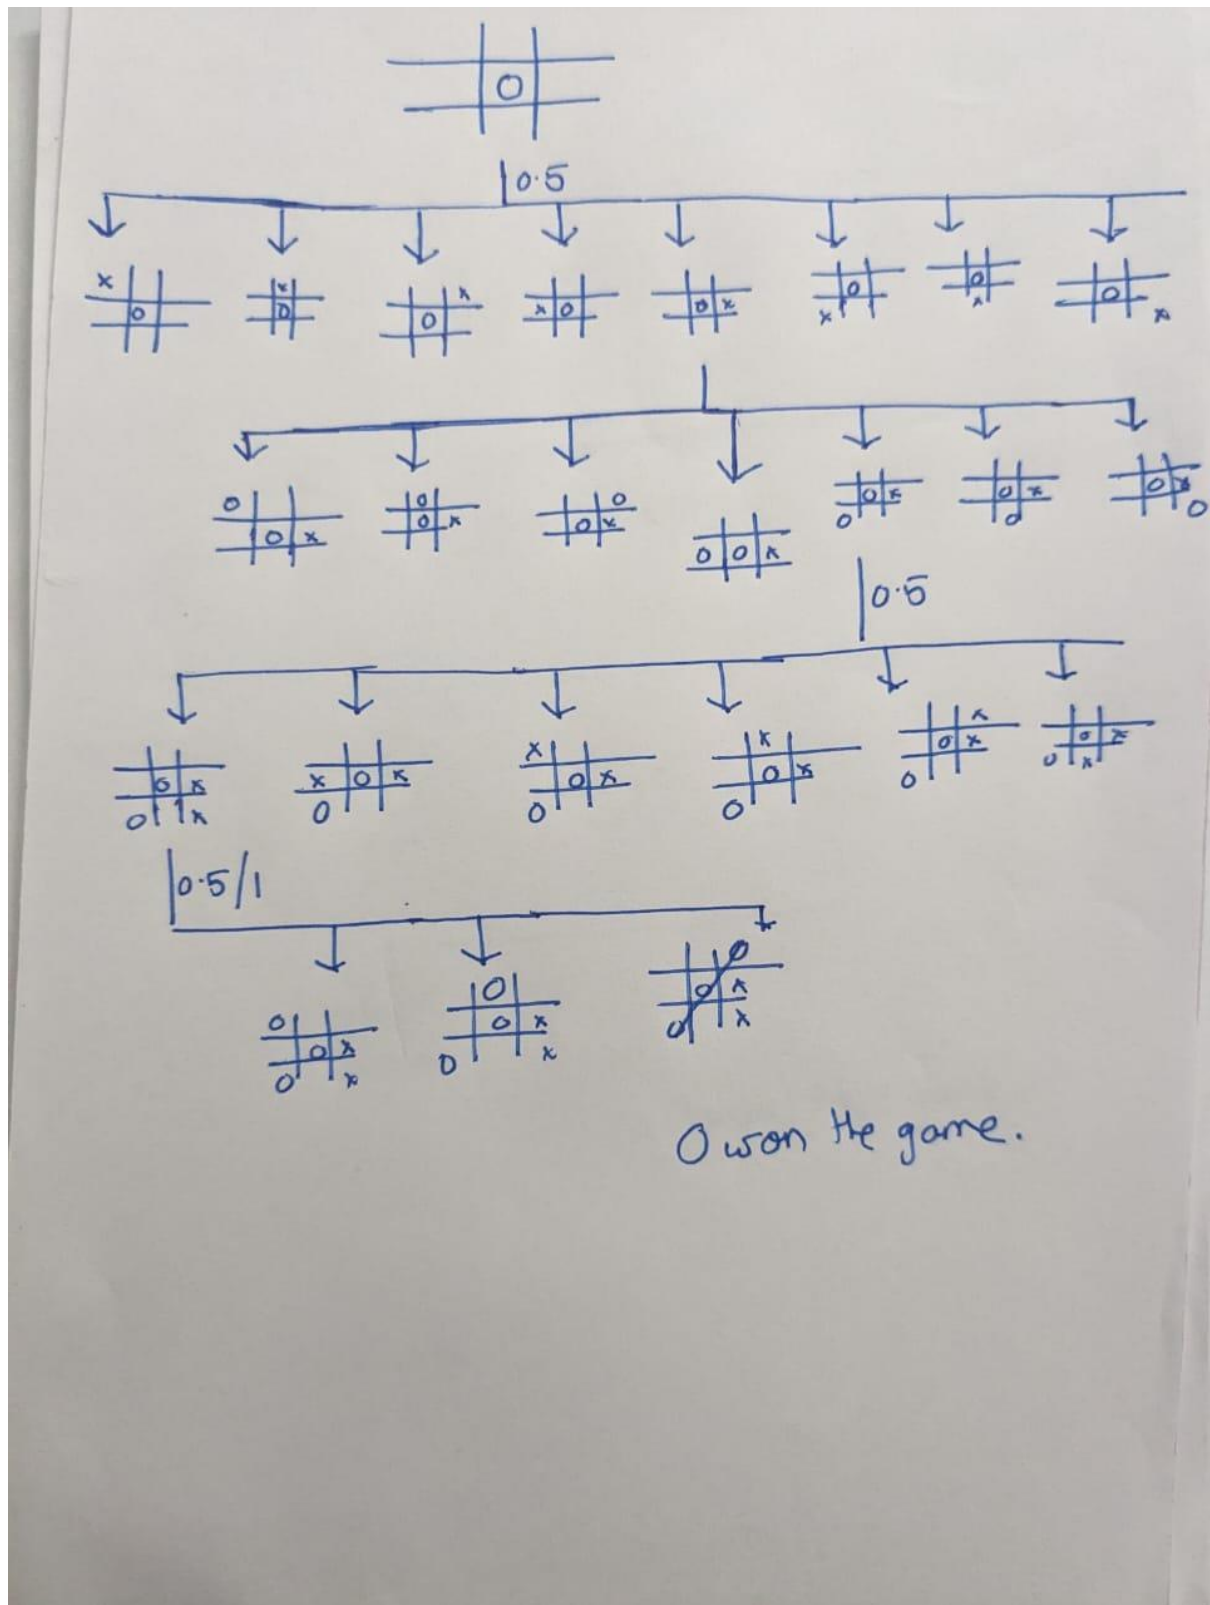 O
0.5
x x x
O O O x O O x O O O
x x x
O O O
O x O x O x O O x O x O x O x
O O O
0.5
x x x
O x x O x O x O x O x O x
O x O O O O O x
0.5/1
O O O
O x O x O x
O x O x O x
O won the game.